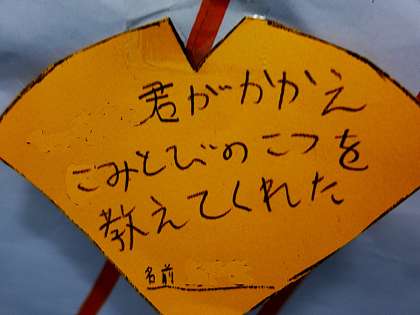 君がかかえ
こみとびのこつを
教えてくれた
名前